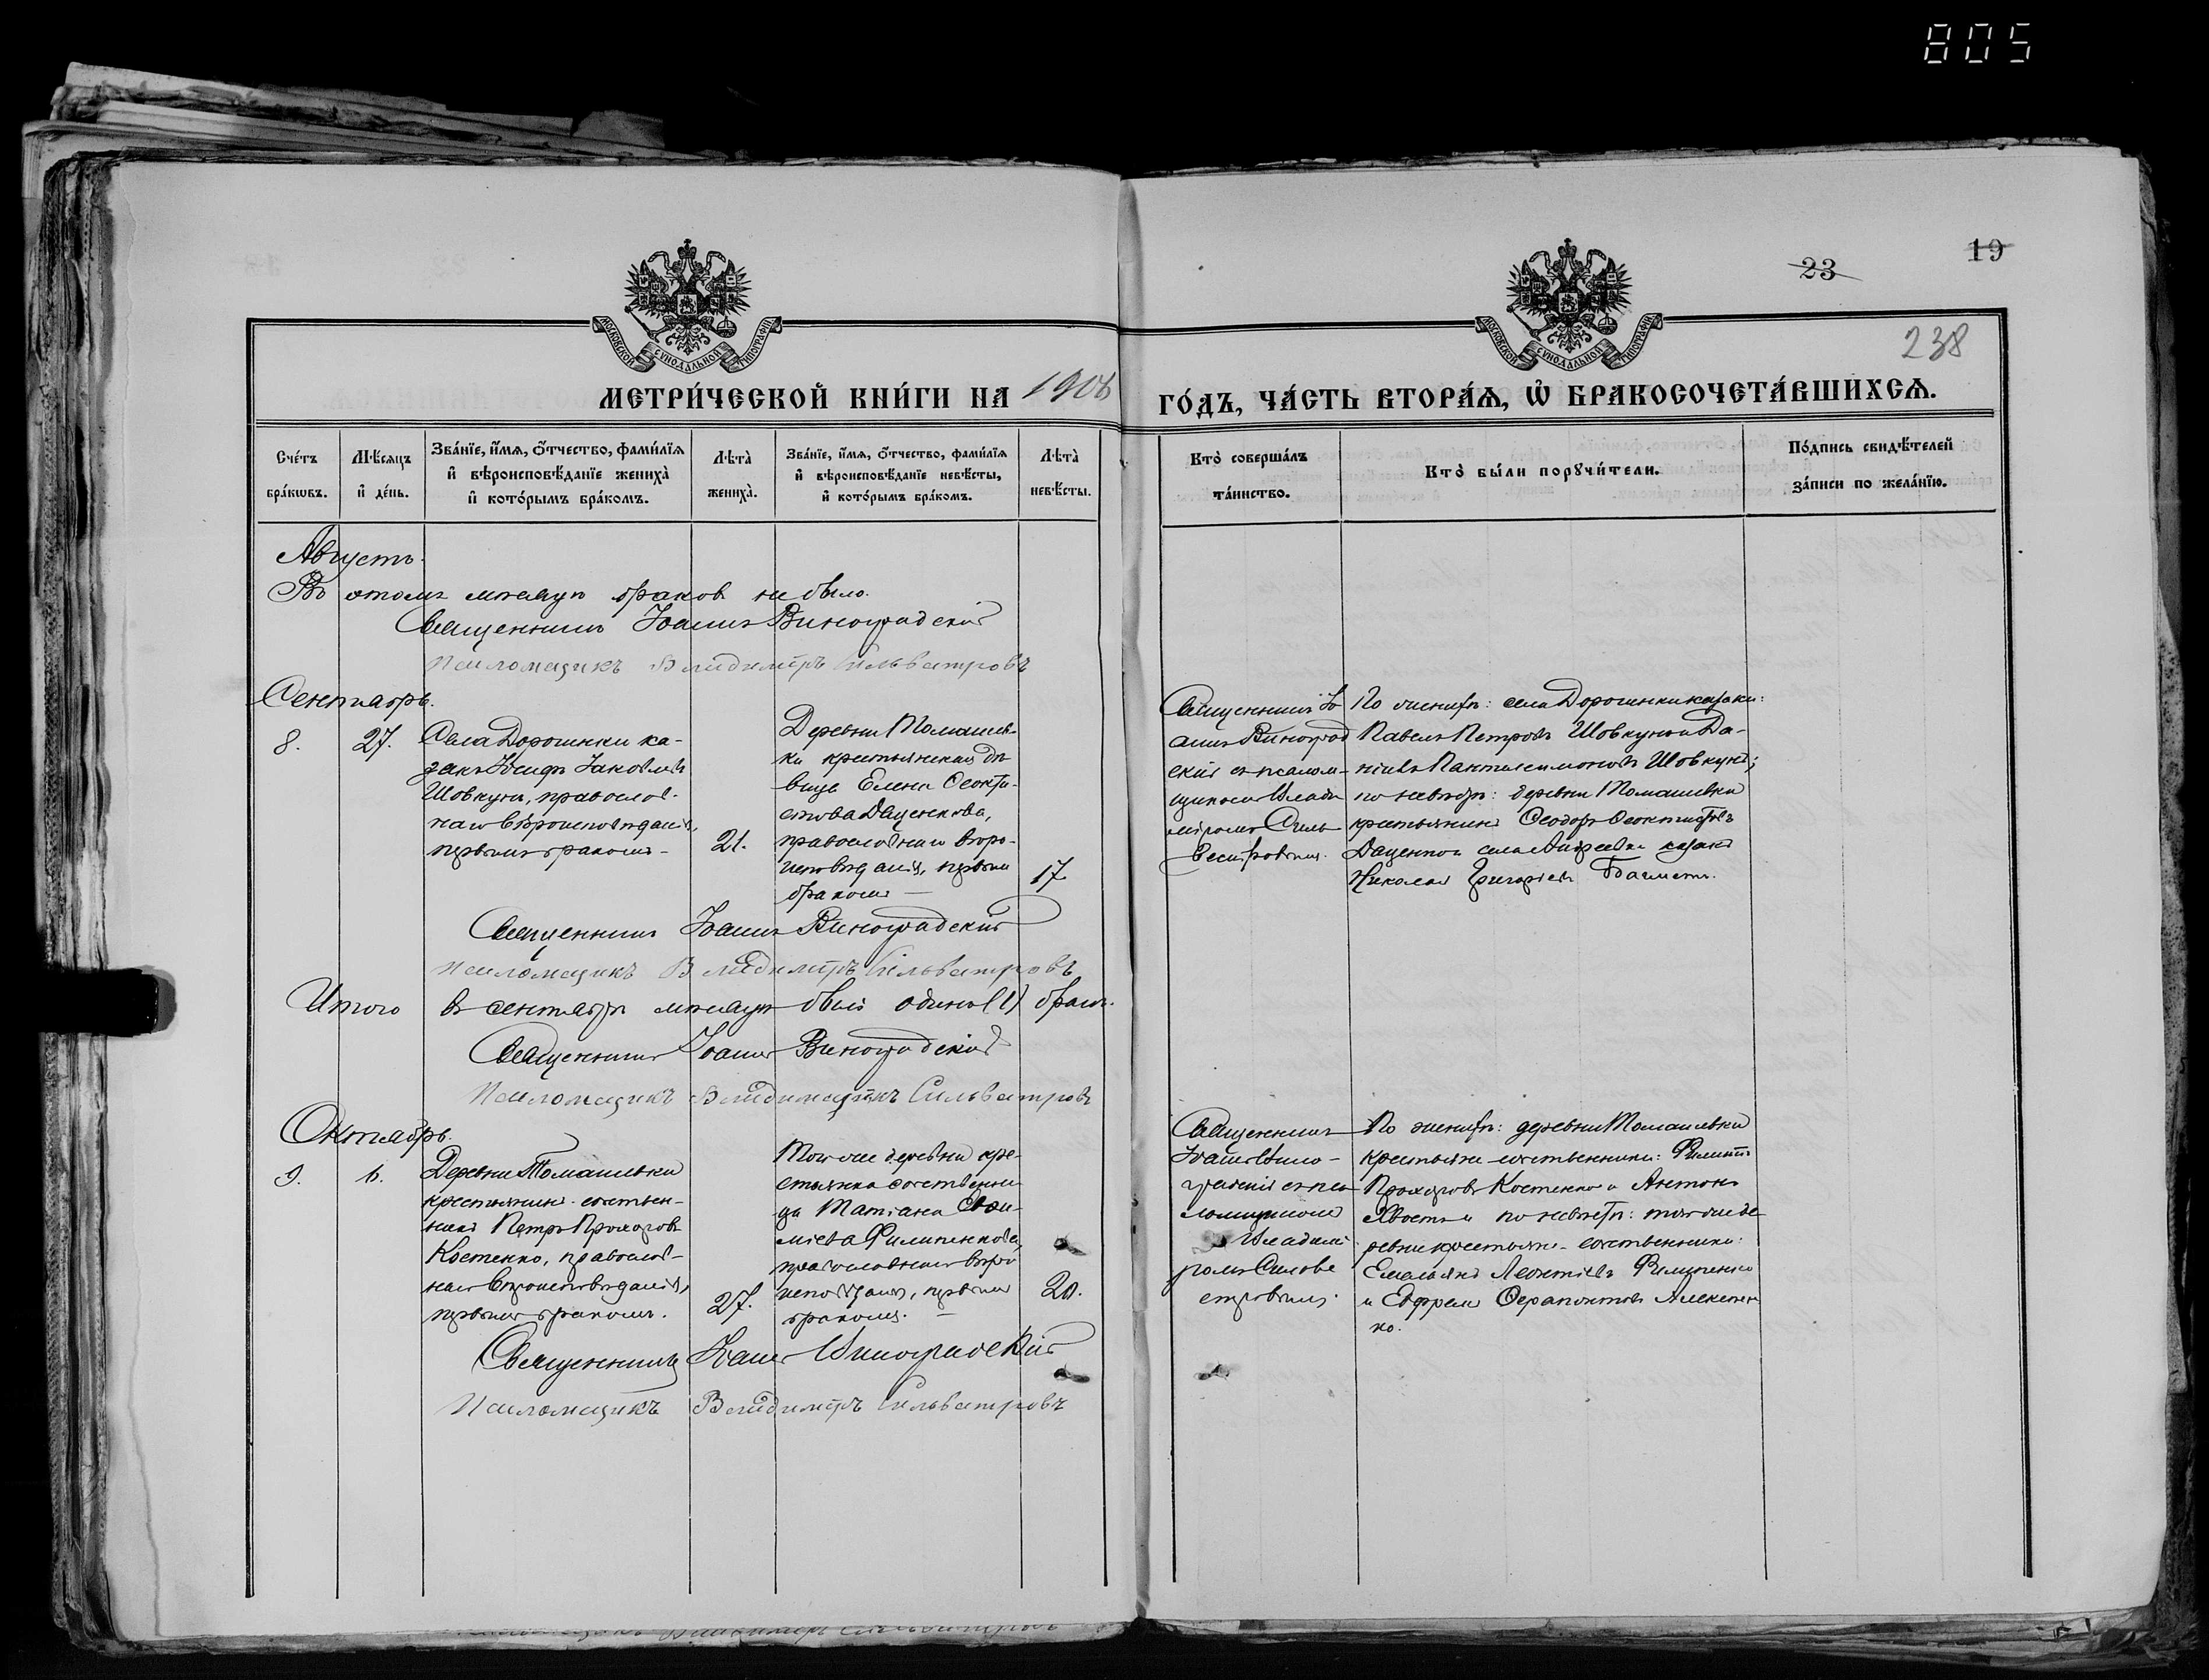 805
19
23
238
МОСКОВСКОЙ СѴНОДАЛЬНОЙ ТИПОГРАФІИ
МОСКОВСКОЙ СѴНОДАЛЬНОЙ ТИПОГРАФІИ
МЕТРИ́ЧЕСКОЙ КНИ́ГИ НА 1908 ГО́ДЪ, ЧА́СТЬ ВТОРА́Ѧ, Ѡ҆ БРАКОСОЧЕТА́ВШИХСѦ.
Сче́тъ бра́кѡвъ.
Мѣ́сяцъ и҆ де́нь.
Зва́нїе, и҆́мѧ, ѻ҆́тчество, фами́лїѧ и҆ вѣроисповѣ́данїе жениха̀ и҆ кото́рымъ бра́комъ.
Лѣта̀ жениха̀.
Зва́нїе, и҆́мѧ, ѻ҆́тчество, фами́лїѧ и҆ вѣроисповѣ́данїе невѣ́сты, и҆ кото́рымъ бра́комъ.
Лѣта̀ невѣ́сты.
Кто̀ соверша́лъ та́инство.
Кто̀ бы́ли порꙋчи́тели.
По́дпись свидѣ́телей за́писи по жела́нїю.
Августъ.
Въ этомъ мѣсяцѣ браков не было.
Священникъ Іоаннъ Виноградскій
Псаломщикъ Владиміръ Сильвестровъ
Сентябрь.
8.
27.
Села Дорошенки ка-
закъ Іосифъ Іаковлевъ
Шовкунъ, православ-
наго вѣроисповѣданія,
первымъ бракомъ
21.
Деревни Томашев-
ки крестьянская дѣ
вица Елена Ѳеокти-
стова Даценкова,
православнаго вѣро-
исповѣданія, первым
бракомъ
17
Священникъ Іо
аннъ Виноград
скій съ псалом-
щикомъ Влади
міромъ Силь
вестровымъ.
По женихѣ: села Дорошенки казаки:
Павелъ Петровъ Шовкунъ и Да-
ніилъ Пантелеимоновъ Шовкунъ;
по невѣстѣ: деревни Томашевки
крестьянинъ Ѳеодоръ Ѳеоктистовъ
Даценко и села Андреевки казакъ
Николай Григоріевъ
Священникъ Іоаннъ Виноградскій
Псаломщикъ Владиміръ Сильвестровъ
Итого въ сентябрѣ мѣсяцѣ былъ одинъ (1) бракъ.
Священникъ Іоаннъ Виноградскій
Псаломщикъ Владиміръ Сильвестровъ
Октябрь.
9.
6.
Деревни Томашевки
крестьянинъ-собствен-
никъ Петръ Прохоровъ
Костенко, православ-
наго вѣроисповѣданія,
первымъ бракомъ.
27.
Той же деревни кре-
стьянка собственни
ца Татіана
Филипенкова,
православнаго вѣро
исповѣданія, первымъ
бракомъ.
20.
Священникъ
Іоаннъ Вино-
градскій съ пса
ломщикомъ
Владимі
ромъ Сильве
стровымъ.
По женихѣ: деревни Томашевки
крестьяне-собственники: Филиппъ
Прохоровъ Костенко и Антонъ
по невѣстѣ: той же де
ревни крестьяне-собственники:
Емельянъ Леонтіевъ Филипенко
и Ефремъ Ѳерапонтовъ Алексеен
ко.
Священникъ Іоаннъ Виноградскій
Псаломщикъ Владиміръ Сильвестровъ